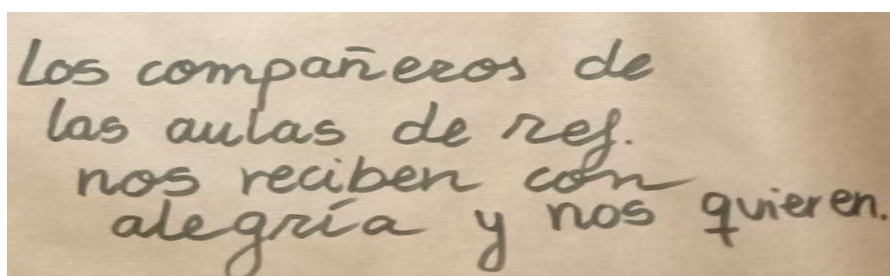 Los compañeros de
las aulas de ref.
nos reciben con
alegría y nos quieren.